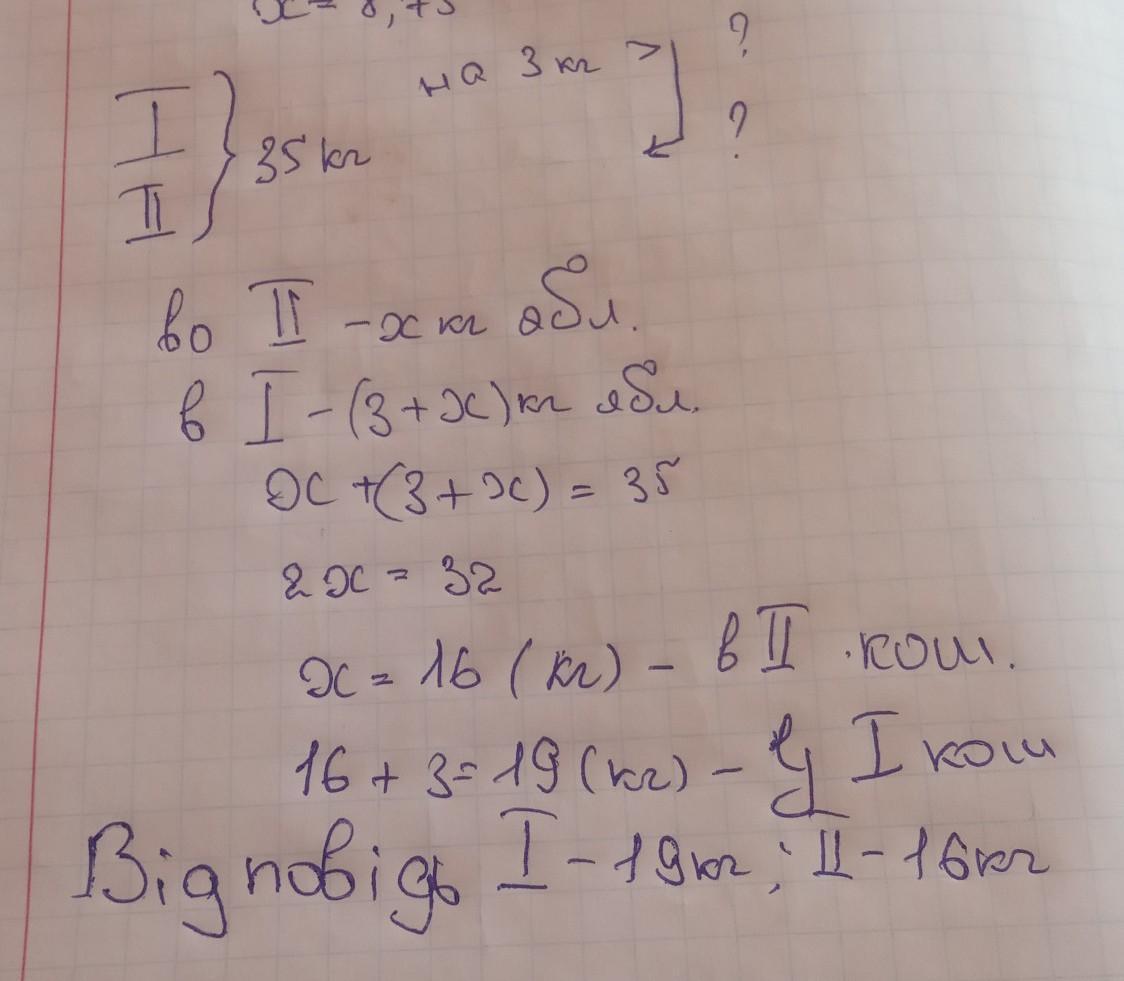 x = 8,75
на 3 кг > ?
I
35 кг ?
II
во II - x кг ябл.
в I - (3 + x) кг ябл.
x + (3 + x) = 35
2x = 32
x = 16 (кг) - в II кош.
16 + 3 = 19 (кг) - у I кош
Відповідь I - 19кг; II - 16кг